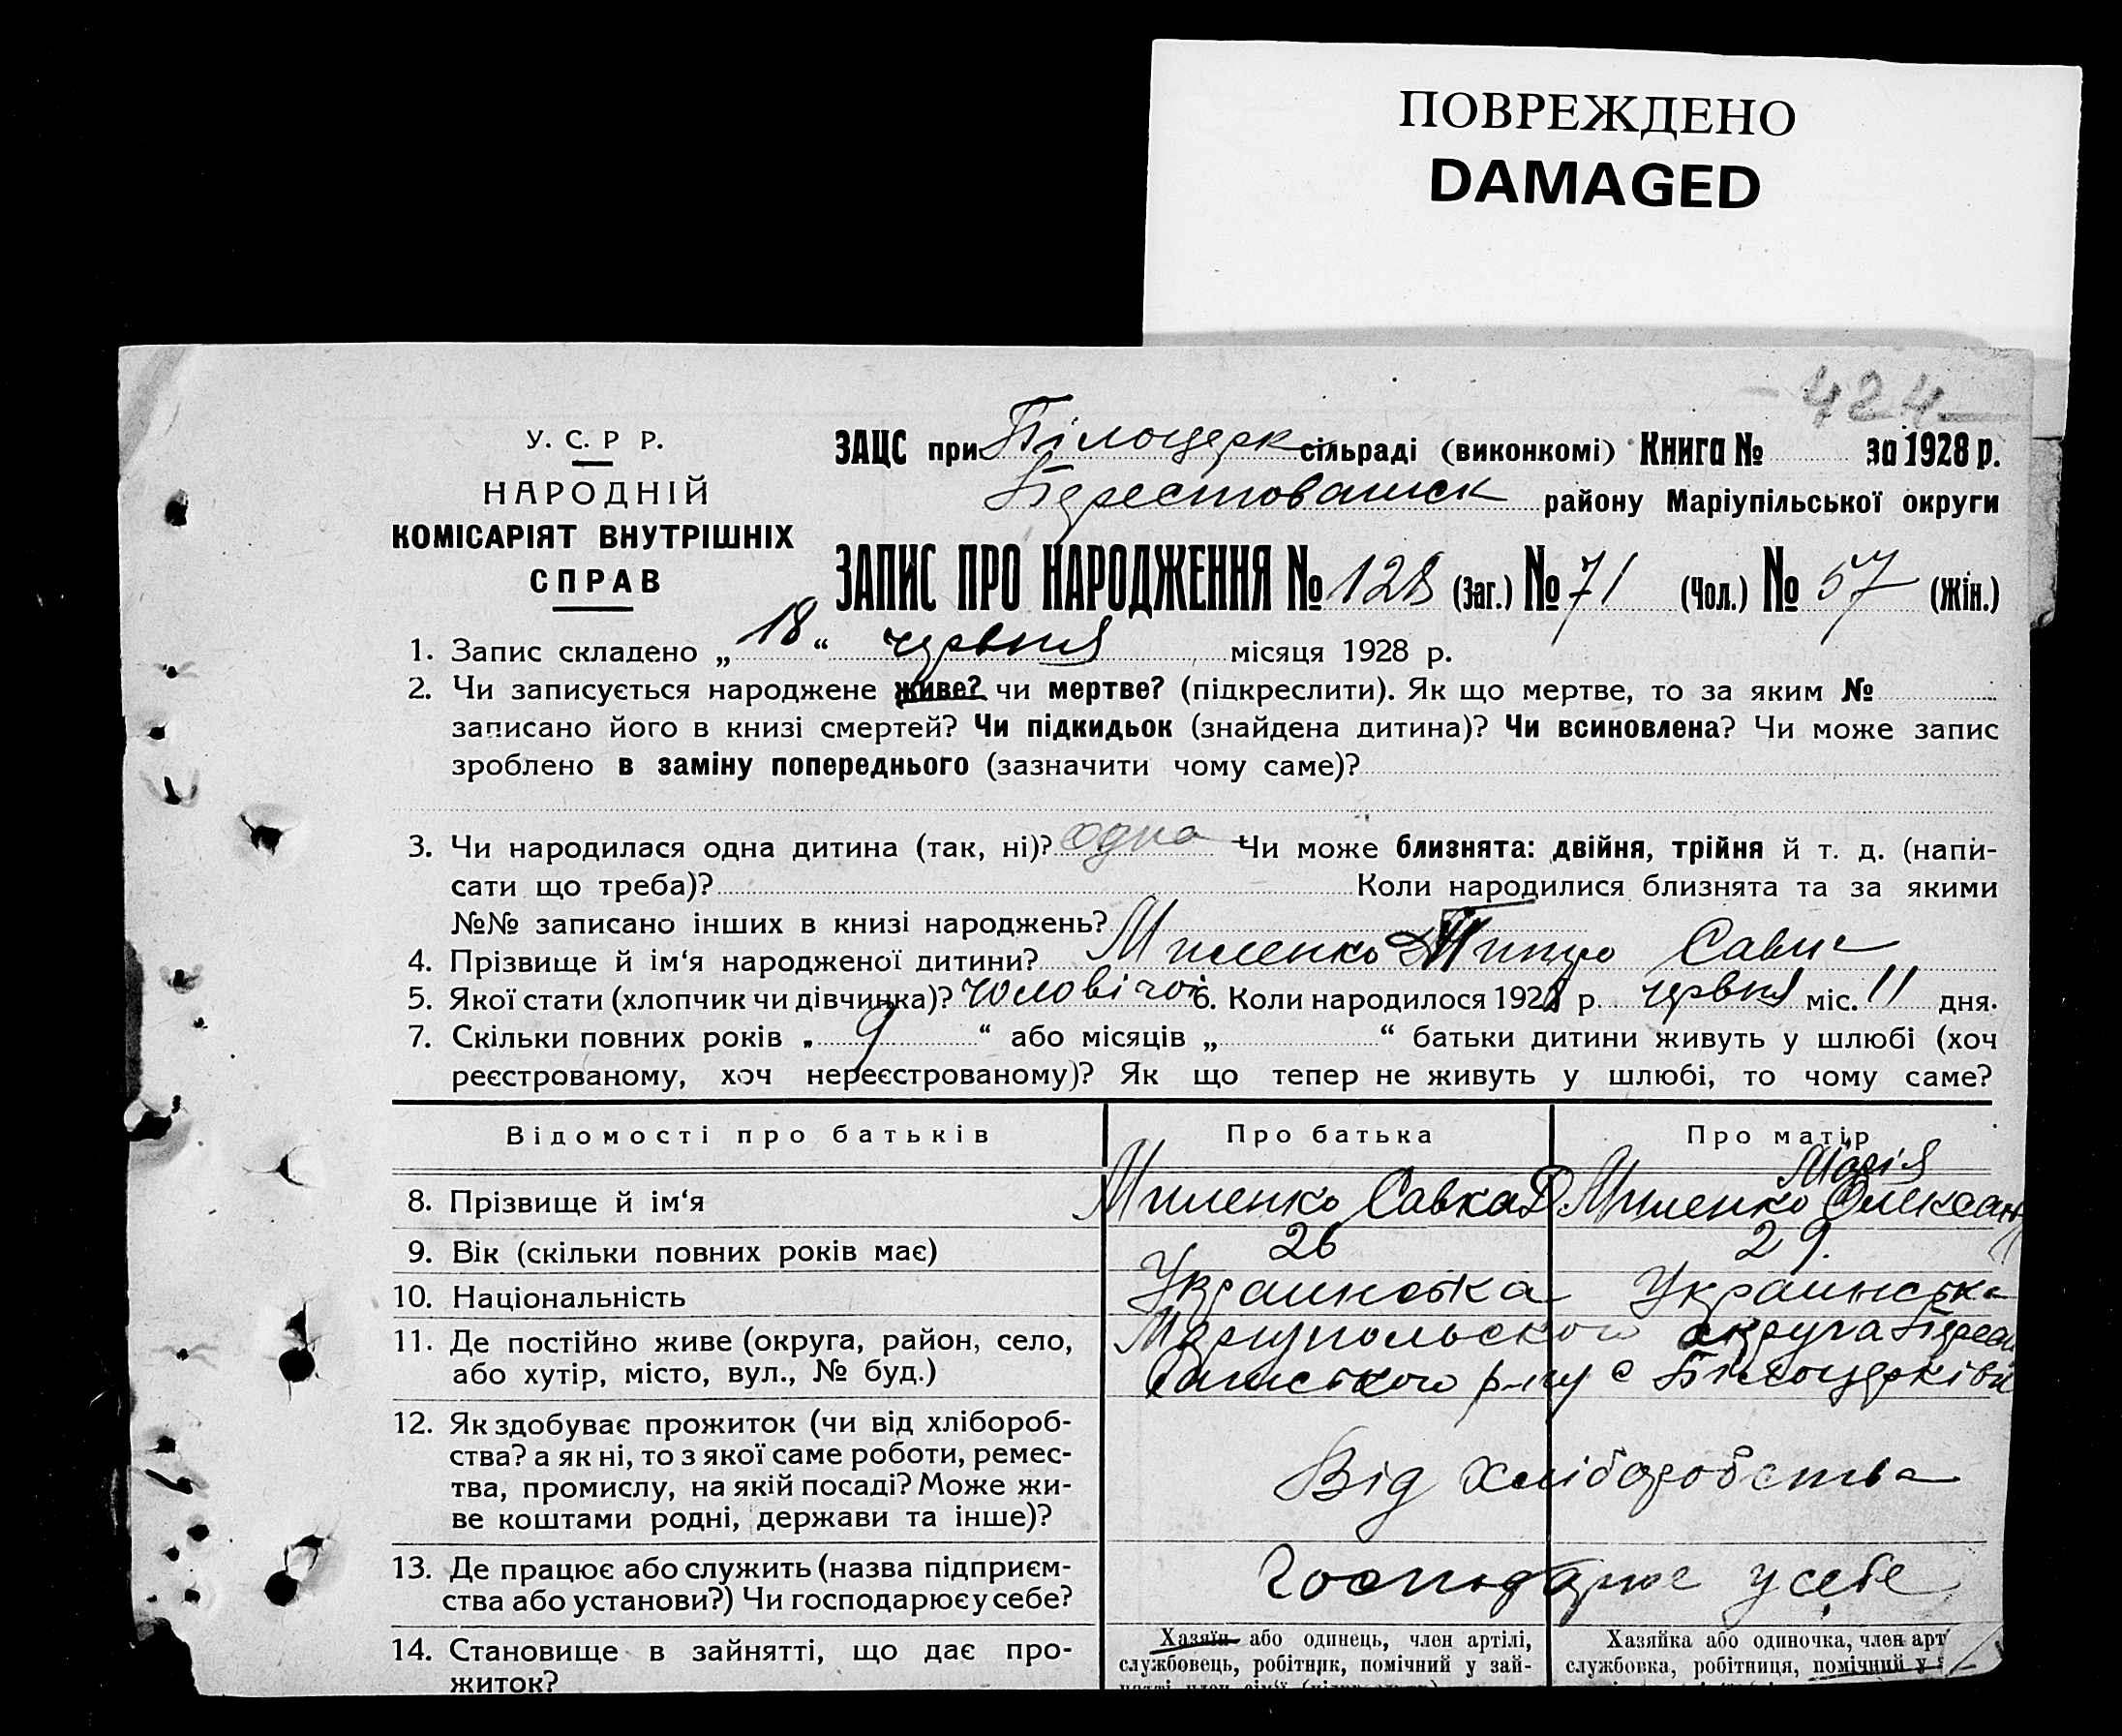 ПОВРЕЖДЕНО
DAMAGED
424
У. С. Р Р.
НАРОДНІЙ
КОМІСАРІЯТ ВНУТРІШНІХ
СПРАВ
ЗАЦС при Білоцерк сільраді (виконкомі) Книга № за 1928 р.
району Маріупільської округи
ЗАПИС ПРО НАРОДЖЕННЯ № 128 (Заг.) № 71 (Чол.) № 57 (Жін.)
1. Запис складено „ 18 “ червня місяця 1928 р.
2. Чи записується народжене живе? чи мертве? (підкреслити). Як що мертве, то за яким №
записано його в книзі смертей? Чи підкидьок (знайдена дитина)? Чи всиновлена? Чи може запис
зроблено в заміну попереднього (зазначити чому саме)?
3. Чи народилася одна дитина (так, ні)? одна Чи може близнята: двійня, трійня й т. д. (напи-
сати що треба)? Коли народилися близнята та за якими
№№ записано інших в книзі народжень?
4. Прізвище й ім‘я народженої дитини? Миленко
5. Якої стати (хлопчик чи дівчинка)? чоловічої 6. Коли народилося 1928 р. червня міс. 11 дня.
7. Скільки повних років „ 9 “ або місяців „ “ батьки дитини живуть у шлюбі (хоч
реєстрованому, хоч нереєстрованому)? Як що тепер не живуть у шлюбі, то чому саме?
Відомості про батьків Про батька Про матір
Марія
8. Прізвище й ім‘я Миленко Савка Миленко Олексан
9. Вік (скільки повних років має) 26 29.
10. Національність Украинська Украинська
11. Де постійно живе (округа, район, село, округа
або хутір, місто, вул., № буд.) р-ну с Білоцерківк
12. Як здобуває прожиток (чи від хлібороб-
ства? а як ні, то з якої саме роботи, ремес-
тва, промислу, на якій посаді? Може жи- Від хліборобства
ве коштами родні, держави та інше)?
13. Де працює або служить (назва підприєм- Господарює у себе
ства або установи?) Чи господарює у себе?
14. Становище в зайнятті, що дає про- Хазяїн або одинець, член артілі, Хазяйка або одиночка, член арт
житок? службовець, робітник, помічний у зай- службовка, робітниця, помічний у